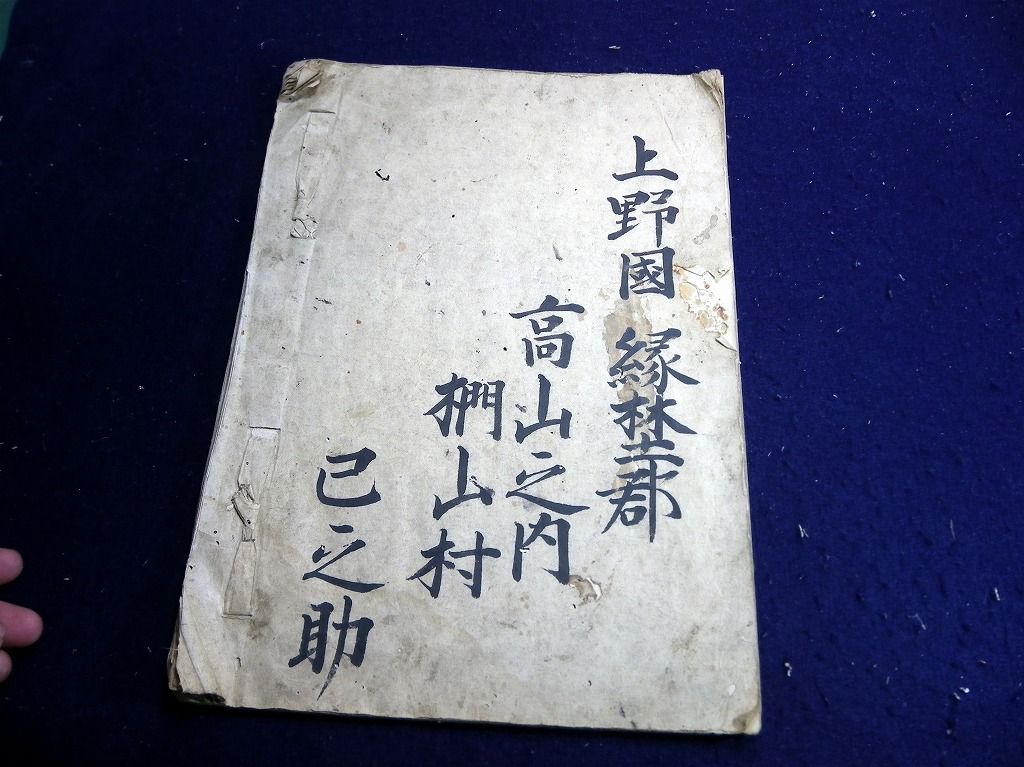 上野國 縁埜郡
高山之内
椚山村
巳之助